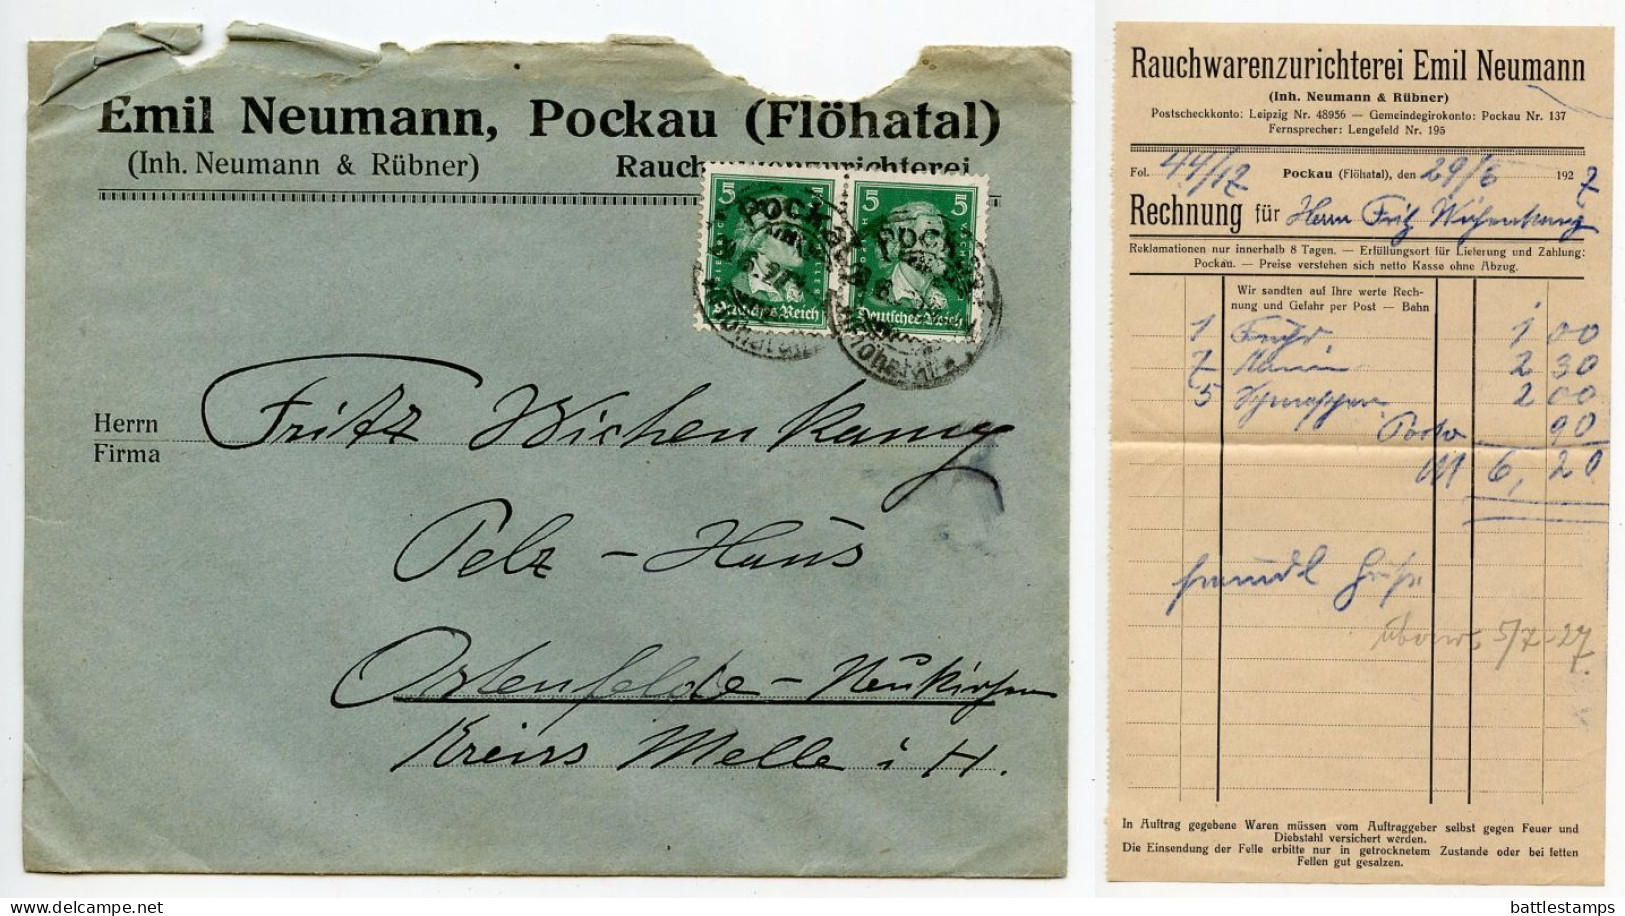 Emil Neumann, Pockau (Flöhatal)
(Inh. Neumann & Rübner) Rauchwarenzurichterei
5 5 5
Pockau
Deutsches Reich Deutsches Reich
Herrn
Firma
Fritz Wichenkamp
Pelz - Haus
Ostenfelde - Neukirchen
Kreiss Melle i H.
Rauchwarenzurichterei Emil Neumann
(Inh. Neumann & Rübner)
Postscheckkonto: Leipzig Nr. 48956 — Gemeindegirokonto: Pockau Nr. 137
Fernsprecher: Lengefeld Nr. 195
Fol. 44/12 Pockau (Flöhatal), den 29/6 192 7
Rechnung für Herrn Fritz Wichenkamp
Reklamationen nur innerhalb 8 Tagen. — Erfüllungsort für Lieferung und Zahlung:
Pockau. — Preise verstehen sich netto Kasse ohne Abzug.
Wir sandten auf Ihre werte Rech-
nung und Gefahr per Post — Bahn
1 1 00
7 2 30
5 2 00
Porto 90
M 6,20
freundl Grüße
5/7-27
In Auftrag gegebene Waren müssen vom Auftraggeber selbst gegen Feuer und
Diebstahl versichert werden.
Die Einsendung der Felle erbitte nur in getrocknetem Zustande oder bei fetten
Fellen gut gesalzen.
battlestamps